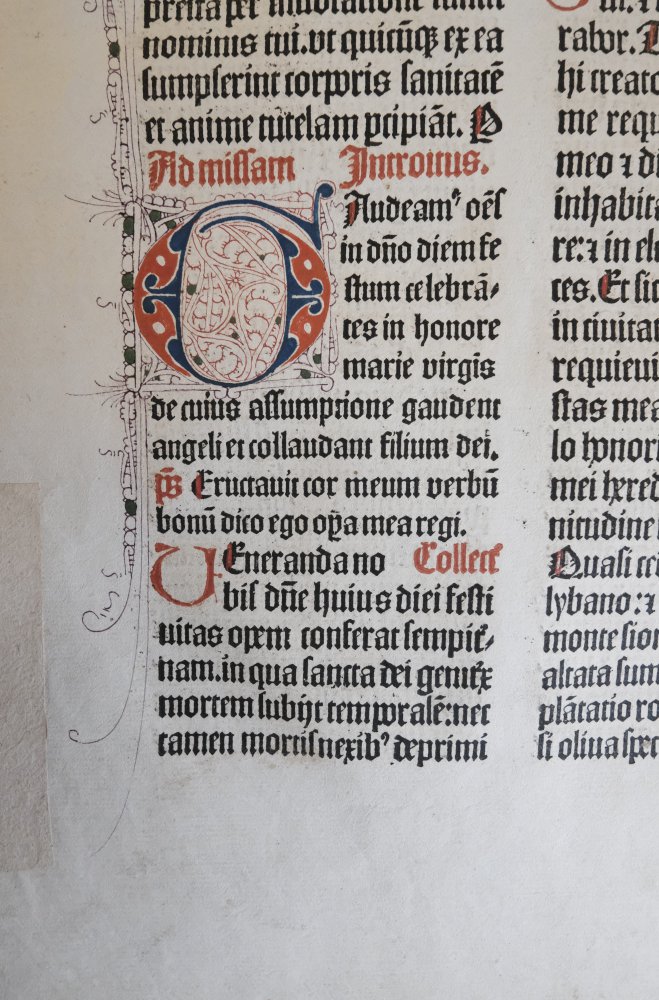 nominis tui.vt quicūqꝫ ex ea
sumpserint corporis sanitatē
et anime tutelam ꝑcipiāt. P
Ad missam Introitus.
GAudeamꝰ oēs
in dño diem fe
stum celebrā⸗
tes in honore
marie virgīs
de cuius assumptione gaudent
angeli et collaudant filium dei.
p̄s Eructauit cor meum verbū
bonū dico ego oꝑa mea regi.
UEneranda no Collecta
bis dñe huius diei festi
uitas opem conferat sempit̄⸗
nam.in qua sancta dei genitꝛix
mortem subijt temporalē:nec
tamen mortis nexibꝰ deprimi
rabor.
hi creato
me requ
meo ⁊ di
inhabita
re:⁊ in ele
ces.Et sic
in ciuitat
requieui
stas mea
lo honori
mei hered
nitudine
Quasi ce
lybano:⁊
monte sion
altata sum
plātatio ro
si oliua spec